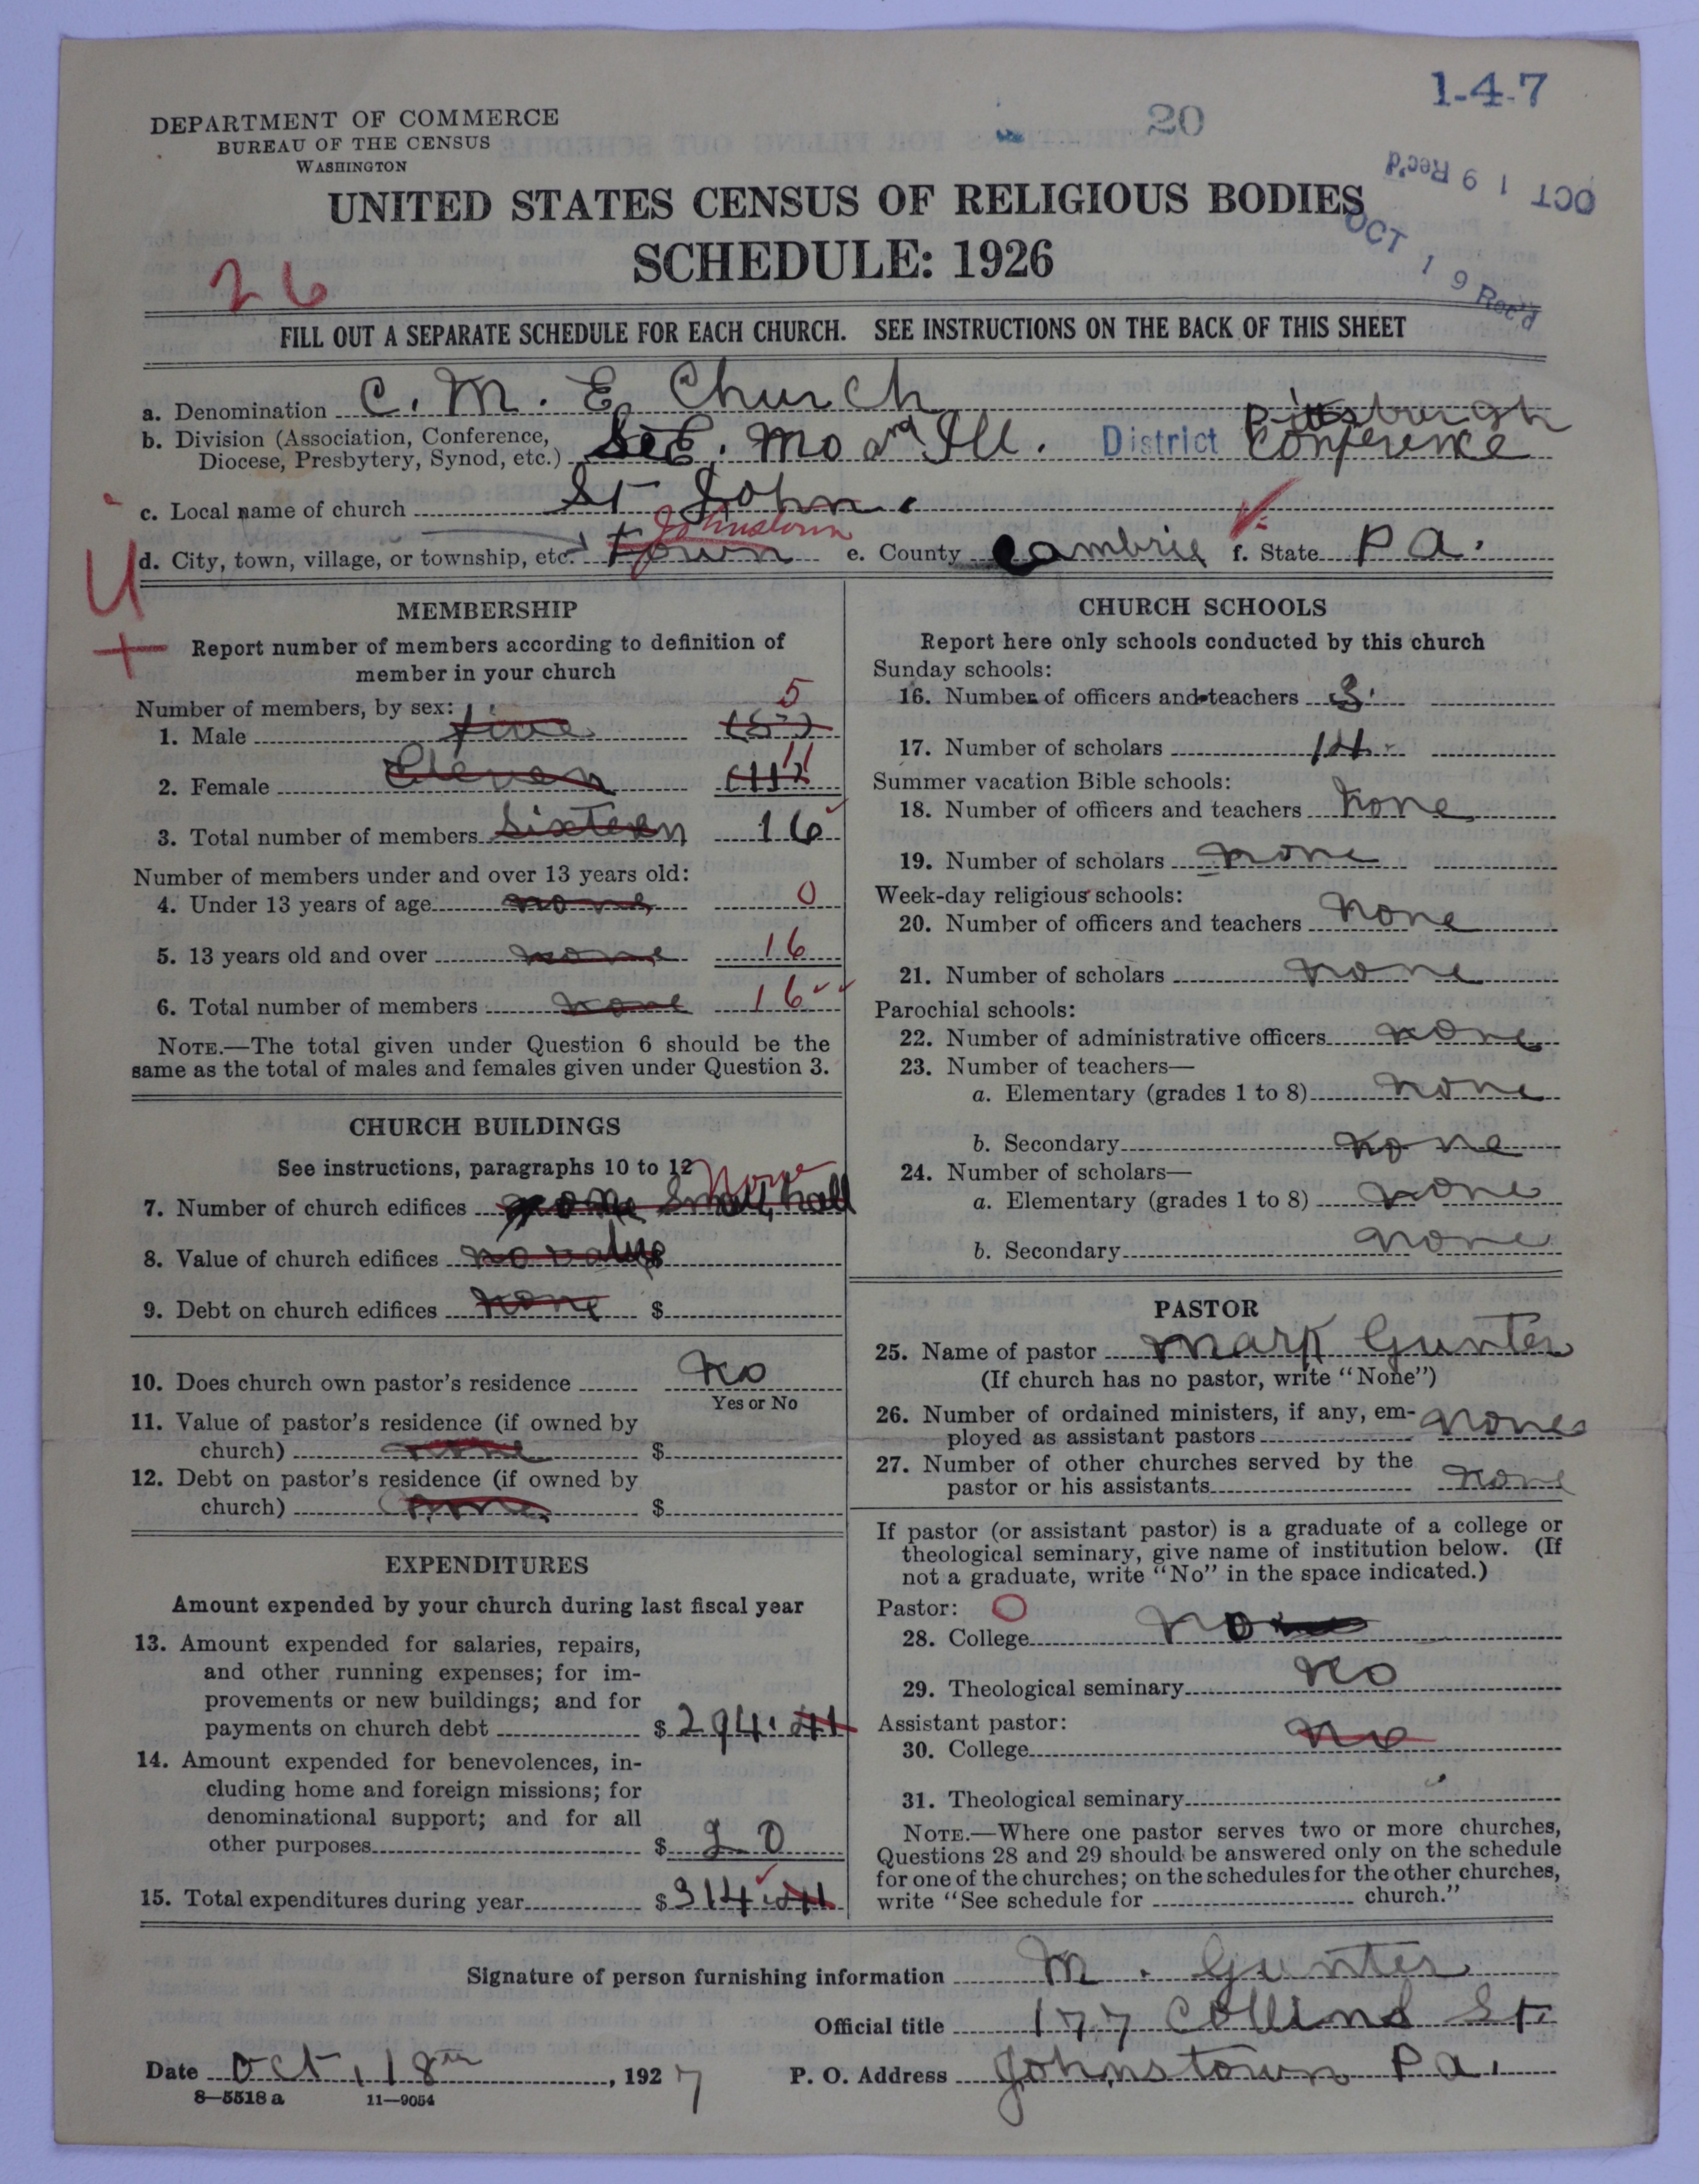 1-4-7
20
DEPARTMENT OF COMMERCE
BUREAU OF THE CENSUS
WASHINGTON
OCT 19 Rec'd
OCT 19 Rec'd
UNITED STATES CENSUS OF RELIGIOUS BODIES
SCHEDULE: 1926
26
FILL OUT A SEPARATE SCHEDULE FOR EACH CHURCH. SEE INSTRUCTIONS ON THE BACK OF THIS SHEET
a. Denomination C. M. E. Church
b. Division (Association, Conference, Diocese, Presbytery, Synod, etc.) S.E. Mo and Ill. District Pittsburgh Conference
c. Local name of church St John.
d. City, town, village, or township, etc. town Johnstown e. County Cambrie f. State Pa.
U
+
MEMBERSHIP
Report number of members according to definition of
member in your church
Number of members, by sex:
1. Male five (5) 5
2. Female Eleven (11) 11
3. Total number of members Sixteen 16
Number of members under and over 13 years old:
4. Under 13 years of age none 0
5. 13 years old and over none 16
6. Total number of members none 16
NOTE.—The total given under Question 6 should be the
same as the total of males and females given under Question 3.
CHURCH BUILDINGS
See instructions, paragraphs 10 to 12
7. Number of church edifices none Small hall None
8. Value of church edifices no value $
9. Debt on church edifices none $
10. Does church own pastor's residence No
Yes or No
11. Value of pastor's residence (if owned by
church) none $
12. Debt on pastor's residence (if owned by
church) none $
EXPENDITURES
Amount expended by your church during last fiscal year
13. Amount expended for salaries, repairs,
and other running expenses; for im-
provements or new buildings; and for
payments on church debt $ 294.41
14. Amount expended for benevolences, in-
cluding home and foreign missions; for
denominational support; and for all
other purposes $ 20
15. Total expenditures during year $ 314.41
CHURCH SCHOOLS
Report here only schools conducted by this church
Sunday schools:
16. Number of officers and teachers 3
17. Number of scholars 14
Summer vacation Bible schools:
18. Number of officers and teachers none
19. Number of scholars none
Week-day religious schools:
20. Number of officers and teachers none
21. Number of scholars none
Parochial schools:
22. Number of administrative officers none
23. Number of teachers—
a. Elementary (grades 1 to 8) none
b. Secondary none
24. Number of scholars—
a. Elementary (grades 1 to 8) none
b. Secondary none
PASTOR
25. Name of pastor Mark Gunter
(If church has no pastor, write "None")
26. Number of ordained ministers, if any, em-
ployed as assistant pastors none
27. Number of other churches served by the
pastor or his assistants none
If pastor (or assistant pastor) is a graduate of a college or
theological seminary, give name of institution below. (If
not a graduate, write "No" in the space indicated.)
Pastor: O
28. College No
29. Theological seminary No
Assistant pastor:
30. College No
31. Theological seminary
NOTE.—Where one pastor serves two or more churches,
Questions 28 and 29 should be answered only on the schedule
for one of the churches; on the schedules for the other churches,
write "See schedule for church."
Signature of person furnishing information M. Gunter
Official title 177 Collins St.
Date Oct, 18th, 1927 P. O. Address Johnstown Pa.
8—5518 a 11—9054